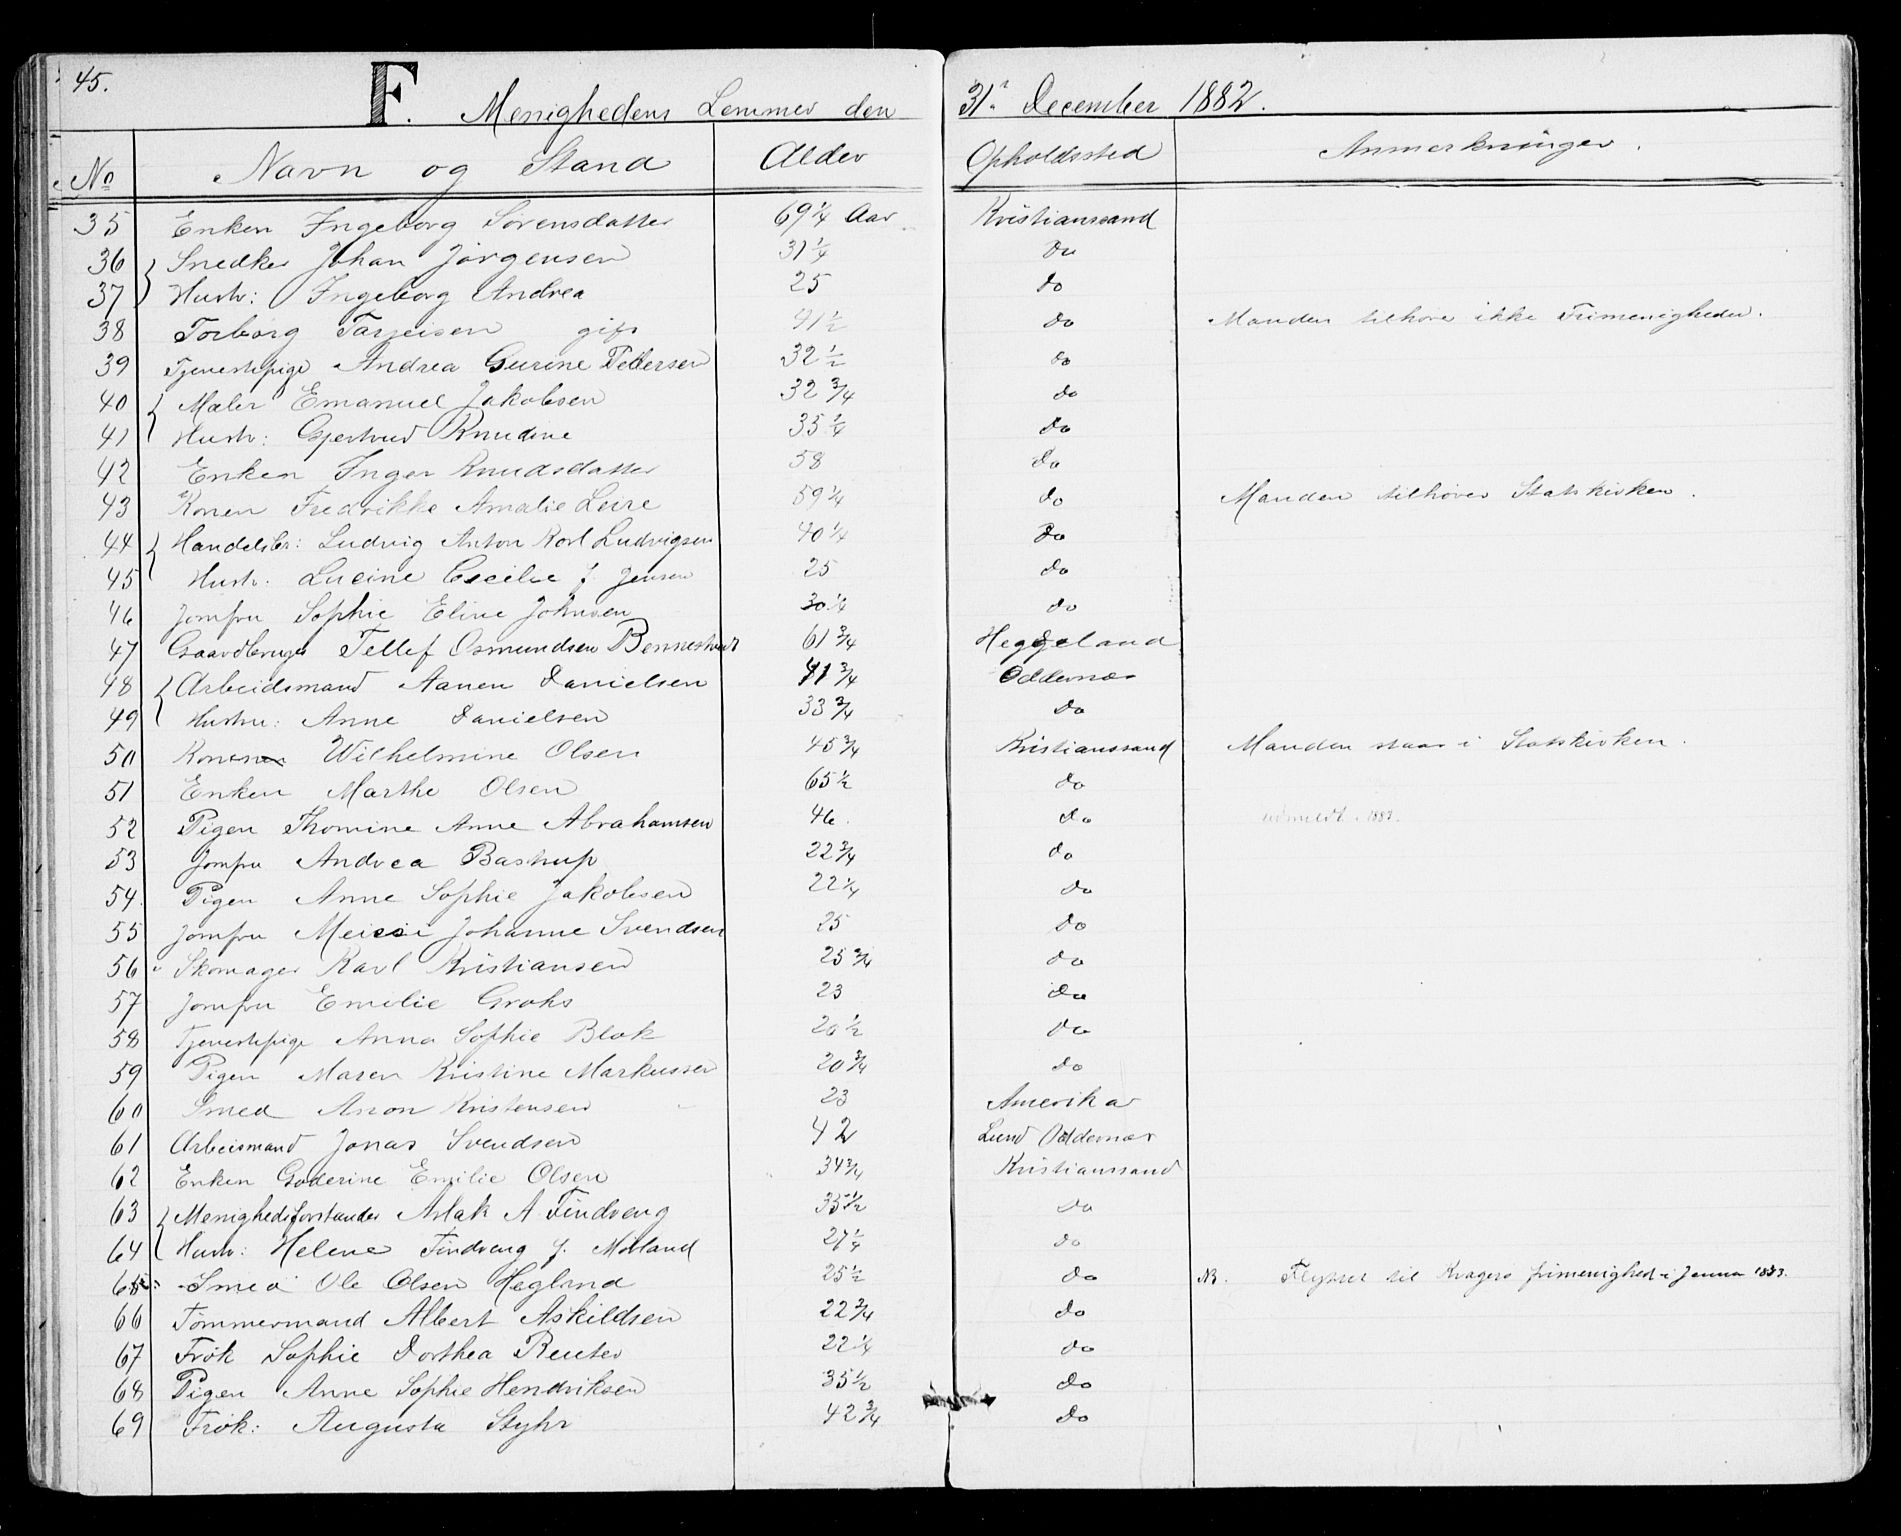 45.
F. Menighedens Lemmer den 31. December 1882.
No Navn og Stand Alder Opholdssted Anmerkninger.
35 Enken Ingeborg Sørensdatter 69 1/4 Aar Kristianssand
36 Snedker Johan Jørgensen 31 1/4 do
37 Hustr: Ingeborg Andrea 25 do
38 Torborg Tarjeisen gift 41 1/2 do Manden tilhøre ikke Frimenigheden.
39 Tjenestepige Andrea Gurine Pettersen 32 1/2 do
40 Maler Emanuel Jakobsen 32 3/4 do
41 Hustr: Gjertrud Knudine 35 1/4 do
42 Enken Inger Knudsdatter 58 do
43 Konen Fredrikke Amalie Leire 59 1/4 do Manden tilhører Statskirken.
44 Handelsbr: Ludvig Anton Karl Ludvigsen 40 1/4 do
45 Hustr: Lucine Cecilie f. Jensen 25 do
46 Jomfru Sophie Eline Johnsen 30 1/4 do
47 Gaardbruger Tellef Osmundsen 61 3/4 Heggeland
48 Arbeidsmand Aanen Danielsen 41 3/4 Oddernæs
49 Hustru: Anne Danielsen 33 3/4 do
50 Konen Wilhelmine Olsen 45 3/4 Kristianssand Manden staar i Statskirken.
51 Enken Marthe Olsen 65 1/2 do
52 Pigen Thomine Anne Abrahamsen 46. do udmeldt
53 Jomfru Andrea Bastrup 22 3/4 do
54. Pigen Anne Sophie Jakobsen 22 1/4 do
55 Jomfru Johanne Svendsen 25 do
56 Skomager Karl Kristiansen 25 3/4 do
57 Jomfru Emilie Grohs 23 do
58 Tjenestepige Anna Sophie Blok 20 1/2 do
59 Pigen Maren Kristine Markussen 20 3/4 do
60 Smed Anon Kristensen 23 Amerika
61 Arbeismand Jonas Svendsen 42 Lund Oddernæs
62 Enken Goderine Emilie Olsen 34 3/4 Kristianssand
63 Menighedsforstander Aslak A Findveng 35 1/2 do
64 Hustr: Helene Findveng f. Mørland 27 1/4 do
65 Smed Ole Olsen Hegland 25 1/2 do NB. Flyttet til Kragerø frimenighed i Januar 1883.
66 Tømmermand Albert Askildsen 22 3/4 do
67 Frøk Sophie Dorthea Reuter 22 1/4 do
68 Pigen Anne Sophie Hendriksen 35 1/2 do
69 Frøk: Augusta Styhr 42 3/4 do